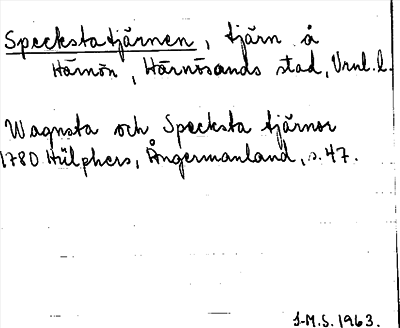 Speckstatjärnen, tjärn å
Härnön, Härnösands stad, Vrnl. l.
Wagnsta och Specksta tjärnor
1780 Hülphers, Ångermanland, s. 47.
J-M.S. 1963.